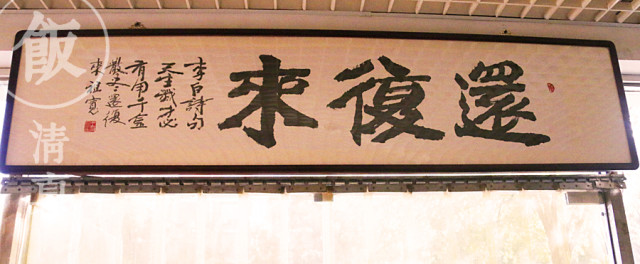 還復來
李白詩句
天生我才必
有用千金
散尽還復
來
飯
清真